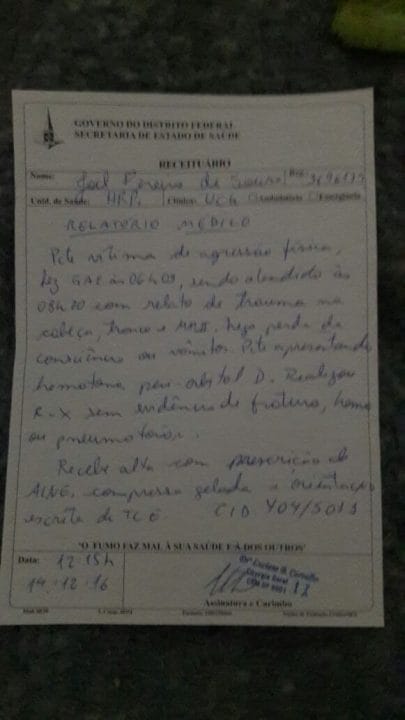 GOVERNO DO DISTRITO FEDERAL
SECRETARIA DE ESTADO DE SAÚDE
RECEITUÁRIO
Nome: de Sousa Reg.
Unid. de Saúde: Clínica: Ambulatório Emergência
RELATÓRIO MÉDICO
Pcte vítima de agressão física,
fez GAE às 06h09, sendo atendido às
08h20 com relato de trauma na
cabeça, tronco e Nega perda de
consciência ou vômitos. Pcte apresentando
hematoma peri-orbital D. Realizou
R-X sem evidência de fratura, hemo
ou pneumotórax.
Recebe alta com prescrição de
compressa gelada e orientação
escrita de TCE. CID Y04/S01
'O FUMO FAZ MAL À SUA SAÚDE E À DOS OUTROS'
Data: 12:15h
14.12.16
Cirurgia Geral
Assinatura e Carimbo